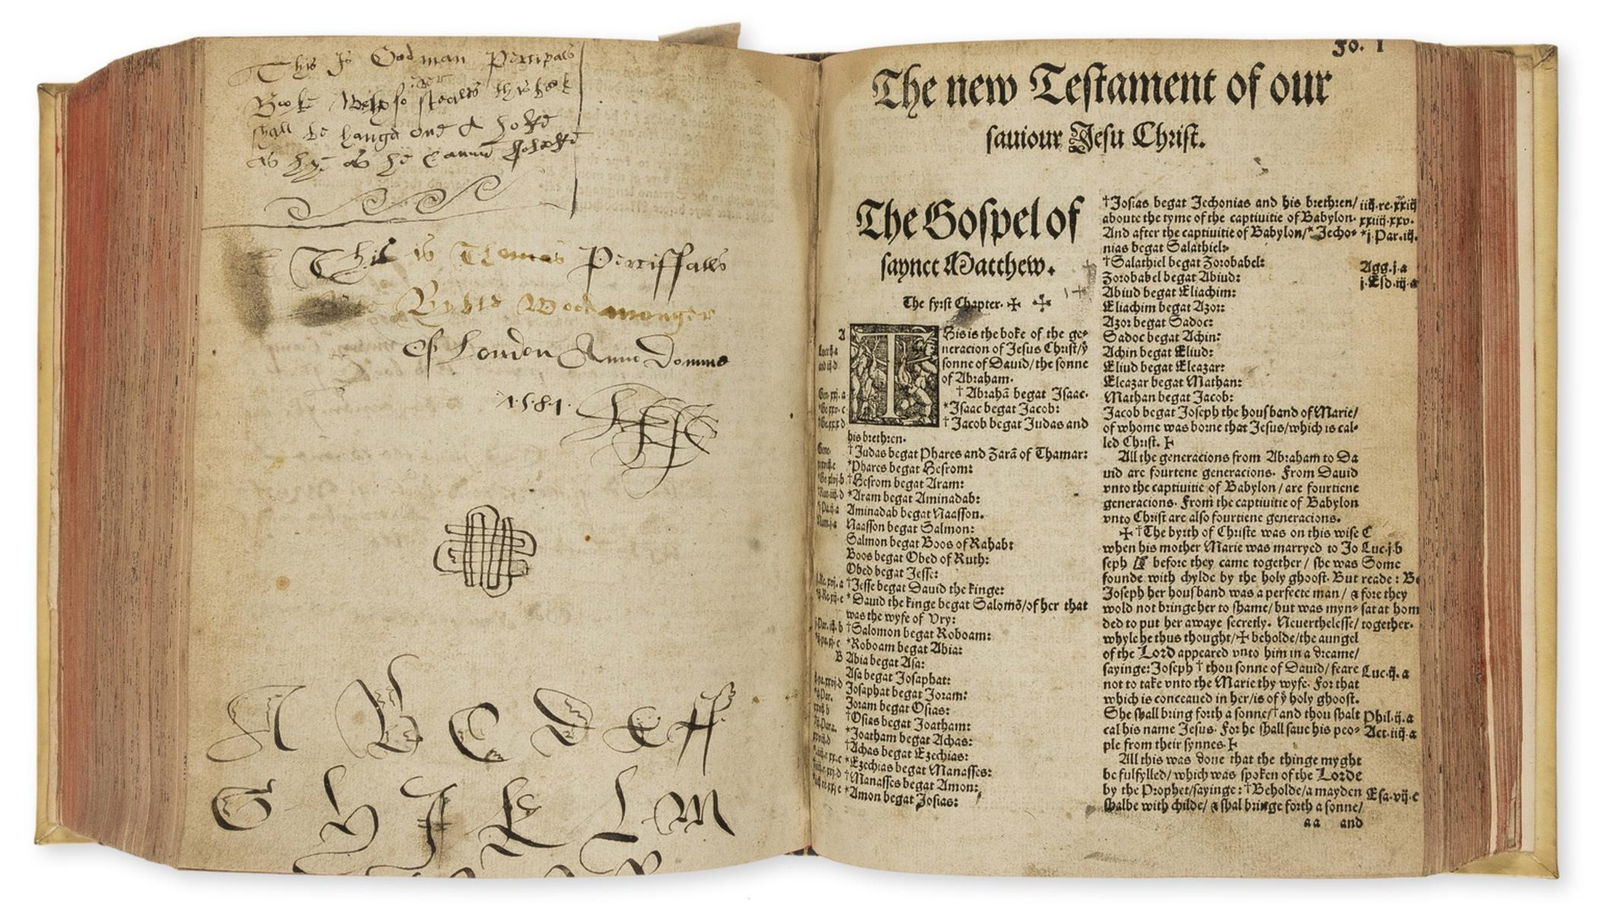 This Is Godman Percivals
Booke
shall be hangd one a hoke
This is Thomas Perciffalls
Byble Woodmonger
Of London Anno Domine
1581
A B C D E ff
G H I K L M
Fo. I
The new Testament of our
saviour Jesu Christ.
The Gospel of
saynct Matthew.
The fyrst Chapter. ✠
THis is the boke of the ge-
neracion of Jesus Christ/ẙ
sonne of Dauid/the sonne
of Abraham.
†Abrahā begat Isaac.
*Isaac begat Jacob:
†Jacob begat Judas and
his brethren.
†Judas begat Phares and Zarā of Thamar:
*Phares begat Hesrom:
†Hesrom begat Aram:
*Aram begat Aminadab:
Aminadab begat Naasson.
Naasson begat Salmon:
Salmon begat Boos of Rahabt
Boos begat Obed of Ruth:
Obed begat Jesse:
†Jesse begat Dauid the kinge:
*Dauid the kinge begat Salomō/of her that
was the wyfe of Vry:
†Salomon begat Roboam:
*Roboam begat Abia:
B Abia begat Asa:
Asa begat Josaphat:
Josaphat begat Joram:
Joram begat Osias:
†Osias begat Joatham:
*Joatham begat Achas:
†Achas begat Ezechias:
*Ezechias begat Manasses:
†Manasses begat Amon:
*Amon begat Josias:
†Josias begat Jechonias and his brethren/
aboute the tyme of the captiuitie of Babylon.
And after the captiuitie of Babylon/*Jecho-
nias begat Salathiel:
†Salathiel begat Zorobabel:
Zorobabel begat Abiud:
Abiud begat Eliachim:
Eliachim begat Azor:
Azor begat Sadoc:
Sadoc begat Achin:
Achin begat Eliud:
Eliud begat Eleazar:
Eleazar begat Mathan:
Mathan begat Jacob:
Jacob begat Joseph the housband of Marie/
of whome was borne that Jesus/which is cal-
led Christ.
All the generacions from Abraham to Da
uid are fourtene generacions. From Dauid
vnto the captiuitie of Babylon/are fourtiene
generacions. From the captiuitie of Babylon
vnto Christ are also fourtiene generacions.
✠ †The byrth of Christe was on this wise C
when his mother Marie was marryed to Jo Luc.j.b
seph before they came together/she was Some
founde with chylde by the holy ghoost. But reade: Be
Joseph her housband was a perfecte man/& fore they
wold not bringe her to shame/but was myn- sat at hom
ded to put her awaye secretly. Neuerthelesse/ together.
whyle he thus thought/✠ beholde/the aungel
of the Lord appeared vnto him in a dreame/
sayinge: Joseph † thou sonne of Dauid/feare Luc.ij.a
not to take vnto the Marie thy wyfe. For that
which is conceaued in her/is of ẙ holy ghoost.
She shall bring forth a sonne/†and thou shalt Phil.ij.a
cal his name Jesus. For he shall saue his peo- Act.iiij.a
ple from their synnes.
All this was done that the thinge myght
be fulfylled/which was spoken of the Lorde
by the Prophet/sayinge: †Beholde/a mayden Esa.vij.c
shalbe with childe/& shal bringe forth a sonne/
aa and